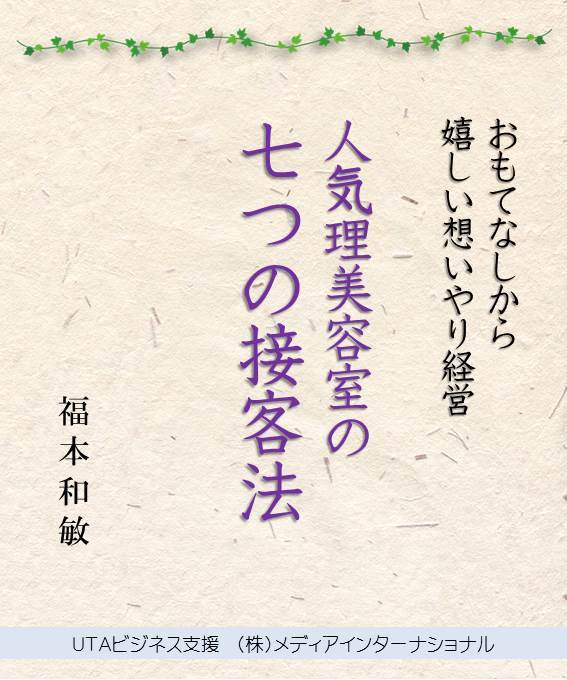 おもてなしから
嬉しい想いやり経営
人気理美容室の
七つの接客法
福本和敏
UTAビジネス支援　（株）メディアインターナショナル